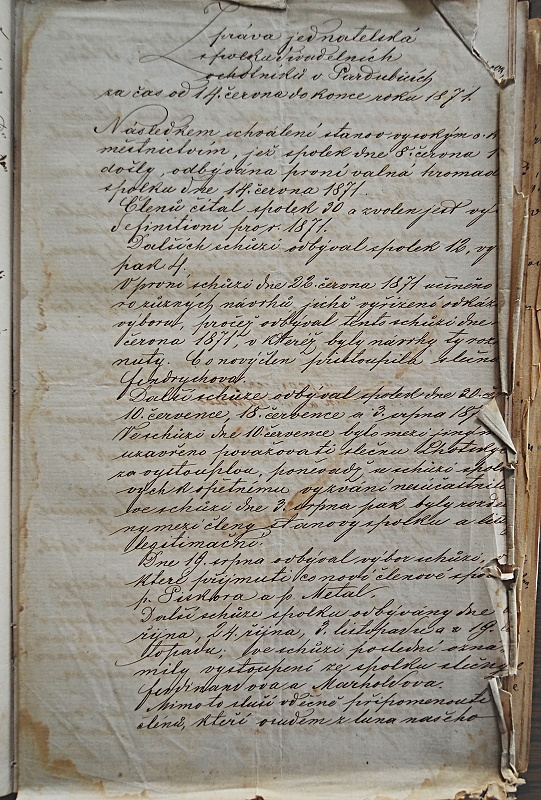 Zpráva jednatelská
spolku divadelních
ochotníků v Pardubicích
za čas od 14. června do konce roku 1871.
Následkem schválení stanov vysokým c. k.
městnictvím, jež spolek dne 8. června 1
došly, odbývána první valná hromad
spolku dne 14. června 1871.
Členů čítal spolek 30 a zvolen jest vý
definitivní pro r. 1871.
Dalších schůzí odbýval spolek 12, vý
pak 4.
V první schůzi dne 22. června 1871 učiněno
různých návrhů jichž vyřízení odkáz
výboru, pročež odbýval tento schůzi dne
června 1871 v kteréž byly návrhy ty roz
nuty. Co nový člen přistoupila slečna
Jindrychova.
Další schůze odbýval spolek dne 30.
10. července, 18. července a 3. srpna 187
Ve schůzi dne 10. července bylo mezi jiným
uzavřeno považovati slečnu
za vystouplou, poněvadž se schůzí spol
vých k opětnému vyzvání neúčastnil
ve schůzi dne 3. srpna pak byly rozd
ny mezi členy stanovy spolku a lís
legitimační.
Dne 19. srpna odbýval výbor schůzi,
které přijmuti co noví členové spo
p. Piskora a p. Metal.
Další schůze spolku odbývány dne
října, 24. října, 3. listopadu a 19.
topadu. Ve schůzi poslední ozná
mily vystoupení ze spolku slečny
Ferdinandova a Marholdova.
Mimo to sluší vděčně připomenouti
členů, kteří osudem z lůna našeho